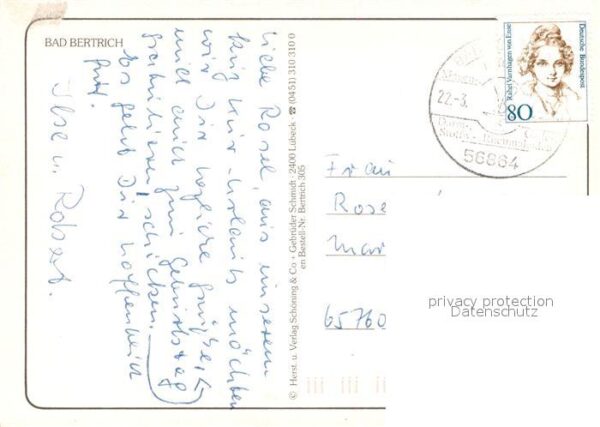 BAD BERTRICH
Liebe Rosel, aus unserem
kurz Kur-Urlaub möchten
wir Dir herzliche Grüße (+
mich auch zum Geburtstag)
schicken.
Es geht Dir hoffentlich
gut.
Ilse u. Robert.
© Herst. u. Verlag Schöning & Co + Gebrüder Schmidt · 2400 Lübeck · ☎ (0451) 310 310 0
en Bestell-Nr. Bertrich 305
Deutsche Bundespost
Rahel Varnhagen von Ense
80
22.-3.
56864
Frau
Rose
Mar
65760
privacy protection
Datenschutz